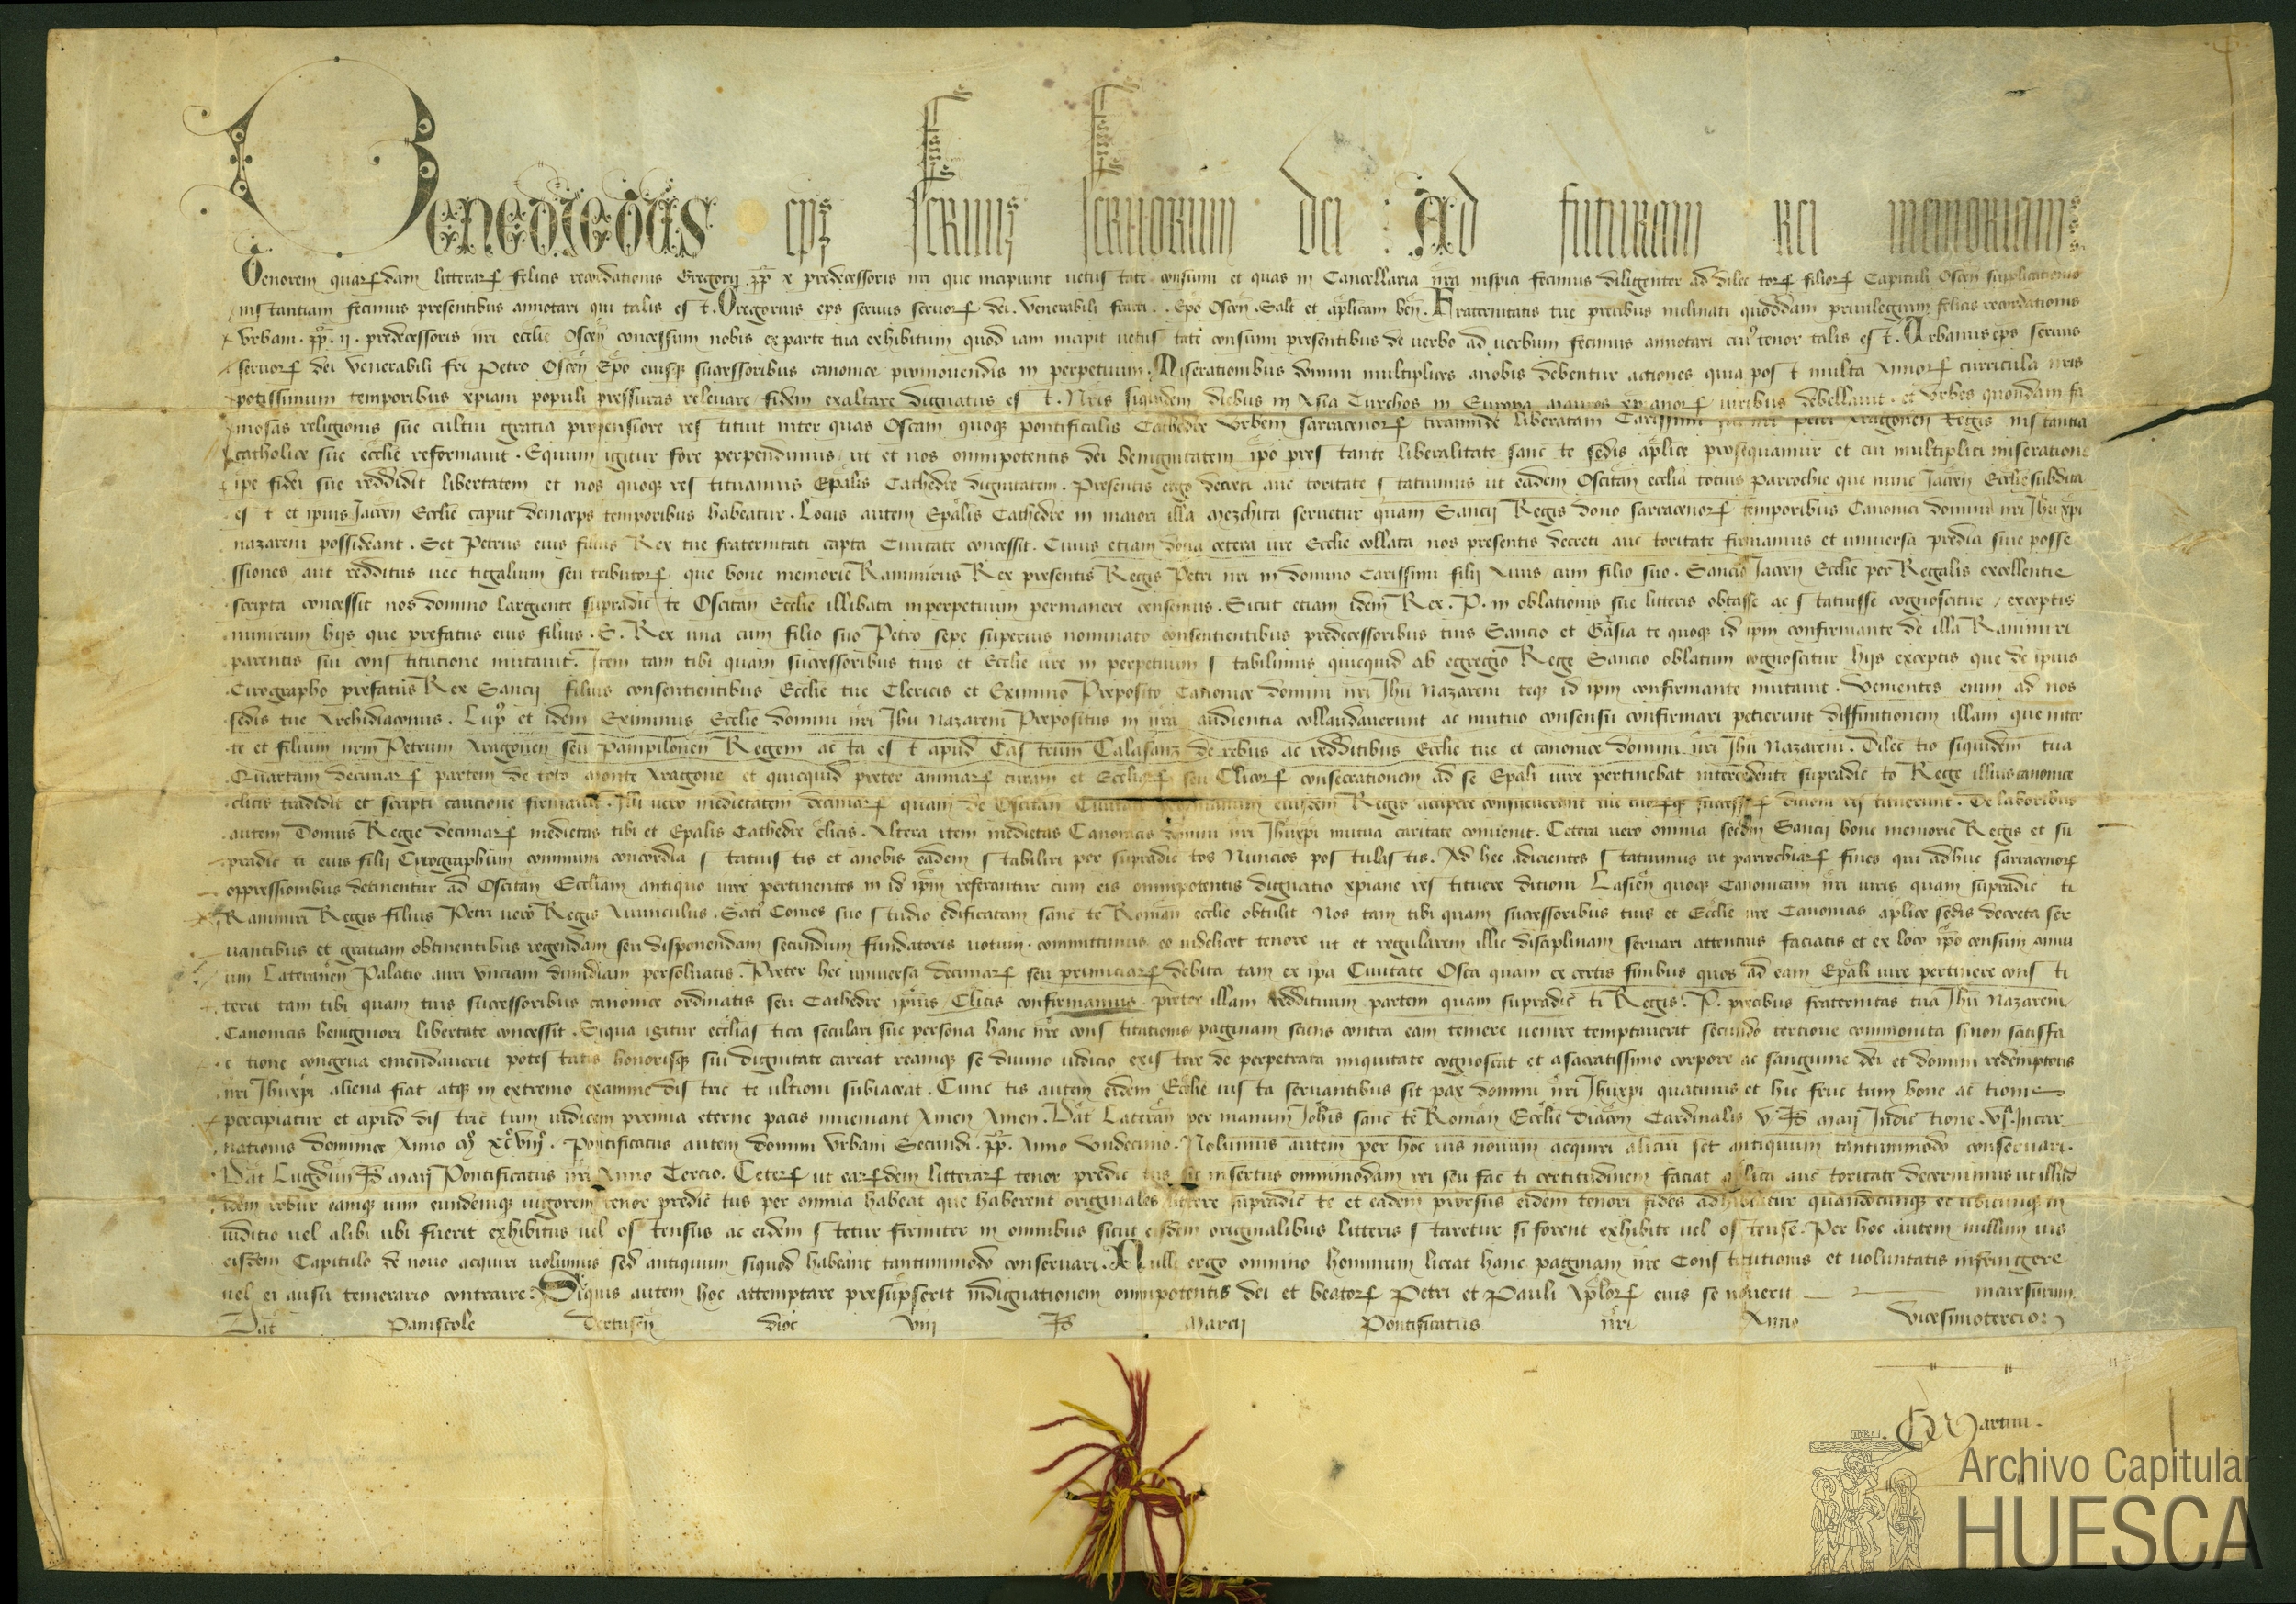 Benedictus eps seruus seruorum dei : Ad futuram rei memoriam
Tenorem quarumdam litterarum felicis recordationis Gregorij pp x predecessoris nri que incipiunt uetustate consumi et quas in Cancellaria nra inspici fecimus diligenter ad dilectorum filiorum Capituli Oscen supplicationis
instantiam fecimus presentibus annotari qui talis est. Gregorius eps seruus seruorum dei. Venerabili fratri .. Epo Oscen. Salt et aplicam ben. Fraternitatis tue precibus inclinati quoddam priuilegium felicis recordationis
Vrbani. pp. ij. predecessoris nri ecclie Oscen concessum nobis ex parte tua exhibitum quod iam incipit uetustate consumi presentibus de uerbo ad uerbum fecimus annotari cui tenor talis est. Vrbanus eps seruus
seruorum dei Venerabili fri Petro Oscen Epo eiusq successoribus canonice promouendis in perpetuum. Miserationibus domini multiplices a nobis debentur actiones quia post multa Annorum curricula nris
potissimum temporibus xpiani populi pressuras releuare fidem exaltare dignatus est. Nris siquidem diebus in Asia Turchos in Europa Mauros xpianorum uiribus debellauit. et Vrbes quondam fa
mosas religionis sue cultui gratia propensiore restituit inter quas Oscam quoq pontificalis Cathedre Vrbem sarracenorum tirannide liberatam Carissimi Petri Aragonen Regis instantia
catholice sue ecclie reformauit. Equum igitur fore perpendimus ut et nos omnipotentis dei benignitatem ipo prestante liberalitate sancte sedis aplice prosequamur et cui multiplici miseratione
ipe fidei sue reddidit libertatem et nos quoq restituamus Epalis Cathedre dignitatem. Presentis ergo decreti auctoritate statuimus ut eadem Oscitan ecclia totius Parrochie que nunc Jaccen Ecclie subdita
est et ipius Jaccen Ecclie caput deinceps temporibus habeatur. Locus autem Epalis Cathedre in maiori illa Mezchita seruetur quam Sancij Regis dono sarracenorum temporibus Canonici domini nri Jhuxpi
nazareni possideant. Set Petrus eius filius Rex tue fraternitati capta Ciuitate concessit. Cuius etiam dona cetera ure Ecclie collata nos presentis decreti auctoritate firmamus et uniuersa predia siue posse
ssiones aut redditus uectigalium seu tributorum que bone memorie Ramimirus Rex presentis Regis Petri nri in domino Carissimi filij Auus cum filio suo. Sancio Jaccen Ecclie per Regalis excellentie
scripta concessit nos domino largiente supradicte Oscitan Ecclie illibata inperpetuum permanere censemus. Sicut etiam idem Rex. P. in oblationis sue litteris obtasse ac statuisse cognoscitur / exceptis
nimirum hijs que prefatus eius filius. S. Rex una cum filio suo Petro sepe superius nominato consentientibus predecessoribus tuis Sancio et Gasia te quoq id ipm confirmante de illa Ramimiri
parentis sui constitutione mutauit. Item tam tibi quam successoribus tuis et Ecclie ure in perpetuum stabilimus quicquid ab egregio Rege Sancio oblatum cognoscitur hijs exceptis que de ipius
Cirographo prefatus Rex Sancij filius consentientibus Ecclie tue Clericis et Eximino Preposito Canonice domini nri Jhu Nazareni teq id ipm confirmante mutauit. Venientes enim ad nos
sedis tue Archidiaconus. Lup et idem Eximinus Ecclie domini nri Jhu Nazareni Prepositus in nra audientia collaudauerunt ac mutuo consensu confirmari petierunt diffinitionem illam que inter
te et filium nrm Petrum Aragonen seu Pampilonen Regem acta est apud Castrum Calasanz de rebus ac redditibus Ecclie tue et canonice domini nri Jhu Nazareni. Dilectio siquidem tua
Quartam decimarum partem de toto Monte Aragone et quicquid preter animarum curam et Eccliarum seu Clicorum consecrationem ad se Epali iure pertinebat intercedente supradicto Rege illius canonice
clicis tradidit et scripti cautione firmauit. Illi uero medietatem decimarum quam de Oscitan Ciuitate eiusdem Regis accipere consueuerant tue tuorumq successorum ditioni restituerunt. De laboribus
autem Domus Regie decimarum medietas tibi et Epalis Cathedre clicis. Altera item medietas Canonicis domini nri Jhuxpi mutua caritate conuenit. Cetera uero omnia secdm Sancij bone memorie Regis et su
pradicti eius filij Cirographum communi concordia statuistis et a nobis eadem stabiliri per supradictos Nuncios postulastis. Ad hec adicientes statuimus ut parrochiarum fines que adhuc sarracenorum
oppressionibus detinentur ad Oscitan Eccliam antiquo iure pertinentes in id ipm referantur cum eis omnipotentis dignatio xpiane restituere ditioni Lasien quoq Canonicam nri iuris quam supradicti
Ramimiri Regis filius Petri uero Regis Auunculus. Sati Comes suo studio edificatam sancte Roman ecclie obtulit Nos tam tibi quam successoribus tuis et Ecclie ure Canonicis aplice sedis decreta ser
uantibus et gratiam obtinentibus regendam seu disponendam secundum fundatoris uotum. committimus eo uidelicet tenore ut et regularem illic disciplinam seruari attentius faciatis et ex loco ipo censum annu
um Lateranen Palatio auri Vnciam dimidiam persoluatis. Preter hec uniuersa decimarum seu primiciarum debita tam ex ipa Ciuitate Osca quam ex certis finibus quos ad eam Epali iure pertinere consti
terit tam tibi quam tuis successoribus canonice ordinatis seu Cathedre ipius Clicis confirmamus. preter illam reddituum partem quam supradicti Regis. P. precibus fraternitas tua Jhu Nazareni
Canonicis benigniori libertate concessit. Siqua igitur ecclastica secularisue persona hanc nre constitutionis paginam sciens contra eam temere uenire temptauerit secundo tertioue commonita si non satisfa
ctione congrua emendauerit potestatis honorisq sui dignitate careat reamq se diuino iudicio existere de perpetrata iniquitate cognoscat et a sacratissimo corpore ac sanguine dei et domini redemptoris
nri Jhuxpi aliena fiat atq in extremo examine districte ultioni subiaceat. Cunctis autem eidem Ecclie iusta seruantibus sit pax domini nri Jhuxpi quatinus et hic fructum bone actionis
percipiatur et apud districtum iudicem premia eterne pacis inueniant Amen Amen. Dat Lateran per manum Johis sancte Roman Ecclie Diacon Cardinalis V. Kl Maij Indictione. vj. Incar
nationis dominice Anno M xc viij. Pontificatus autem domini Vrbani Secundi. pp. Anno Vndecimo. Nolumus autem per hoc ius nouum acquiri alicui set antiquum tantummodo conseruari.
Dat Lugdun Kl Maij Pontificatus nri Anno Tercio. Ceterum ut earumdem litterarum tenor predictus sic insertus omnimodam rei seu facti certitudinem faciat aplica auctoritate decernimus ut illud
idem robur eamq uim eundemq uigorem tenor predictus per omnia habeat que haberent originales littere supradicte et eadem prorsus eidem tenori fides adhibeatur quandocunq et ubicunq in
iuditio uel alibi ubi fuerit exhibitus uel ostensus ac eidem stetur firmiter in omnibus sicut eisdem originalibus litteris staretur si forent exhibite uel ostense. Per hoc autem nullum ius
eisdem Capitulo de nouo acquiri uolumus sed antiquum siquod habeant tantummodo conseruari. Nulli ergo omnino hominum liceat hanc paginam nre Constitutionis et uoluntatis infringere
uel ei ausu temerario contraire. Siquis autem hoc attemptare presumpserit indignationem omnipotentis dei et beatorum Petri et Pauli Aplorum eius se nouerit incursurum
Dat Paniscole Dertusen dioc viij Kl Marcij Pontificatus nri Anno Vicesimotercio
Martini.
Archivo Capitular
HUESCA